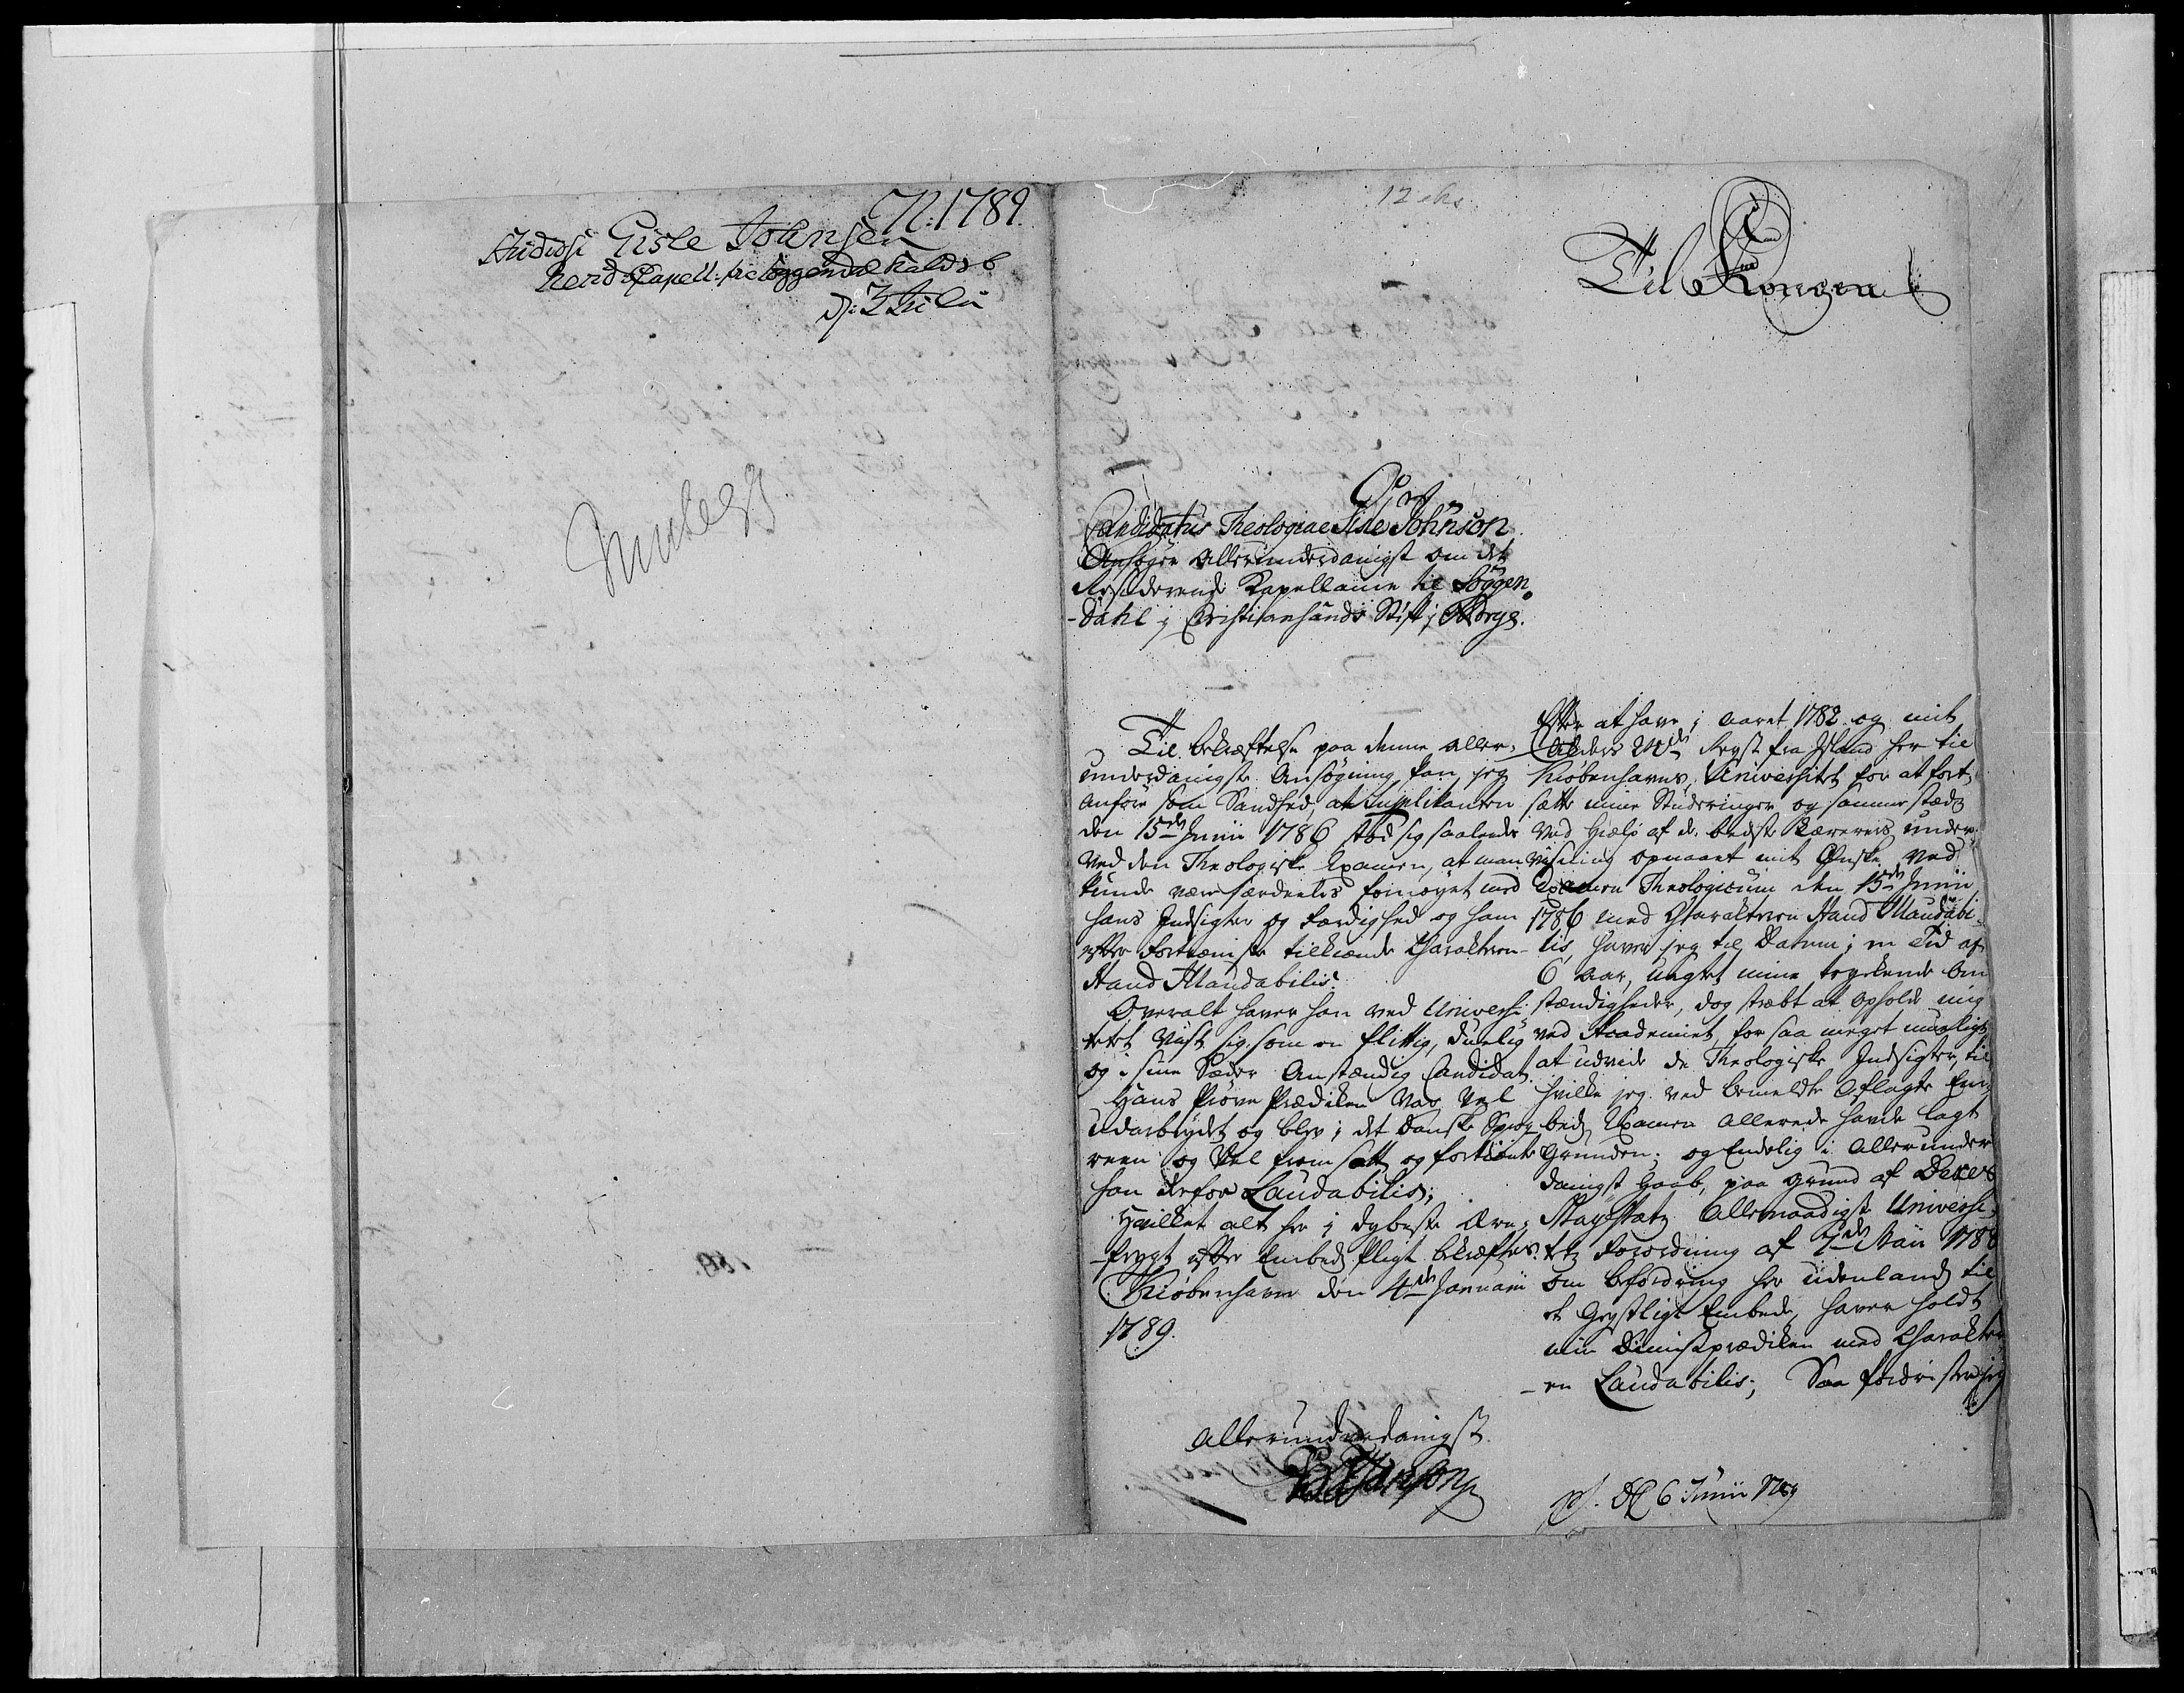 N. 1789.
Studiosi Gisle Johnsen
Resid Capell. til Soggendal Kald
d. 3 Julii
12 βks.
Til Kongen
Candidatus Theologiae Gisle Johnson
Ansøger allerunderdanigst om det
Residerende Kapellanie til Soggen
-dahl i Christiansands Stift i Norge.
Til bekræftelse paa denne aller-
underdanigste Ansøgning kan jeg
anføre som Sandhed, at Suplikanten
den 15de Junii 1786 stod sig saaledes
ved den Theologiske Examen, at man
kunde være særdeeles fornøyet med
hans Indsigter og Færdighed og ham
efter Fortieneste tilkiendt Charakteren
Haud Illaudabilis.
Overalt haver han ved Universi-
tetet viist sig som en flittig, duelig
og i sine Sæder anstændig Candidat.
Hans Prøve Prædiken var vel
udarbeydet og blev i det Danske Sprog
reen og vel fremsatt og fortiente
han derfor Laudabilis;
Hvilket alt her i dybeste Ære-
frygt efter Embeds Pligt bekræftes.
Kiøbenhavn den 4de Januarii
1789.
allerunderdanigst
Efter at have i aaret 1782 og mit
Alders 20de Reyst fra Island her til
Kiøbenhavns Universitet for at fort
sætte mine Studeringer og sammestæds
ved Hielp af de bedste Læreres under
viisning opnaaet mit Ønske ved
Examen Theologicum den 15de Junii
1786 med Charakteren Haud Illaudabi-
lis, haver jeg til Datum i en Tid af
6 aar, uagtet mine trykkende Om
stændigheder, dog stræbt at opholde mig
ved Academiet, for saa meget mueligt
at udvide de Theologiske Indsigter, til
hvilke jeg ved bemeldte aflagte Em-
beds Examen allerede havde lagt
Grunden; og Endelig i Allerunder
danigst Haab, paa Grund af Deres
Mayestæts Allernaadigste Universi-
tets Forordning af 7de Maii 1788
om befordring her udenlands til
et Geystligt Embede, haver holdt
min Dimisprædiken med Charakter
-en Laudabilis; Saa fordrister jeg
6 Junii 1789